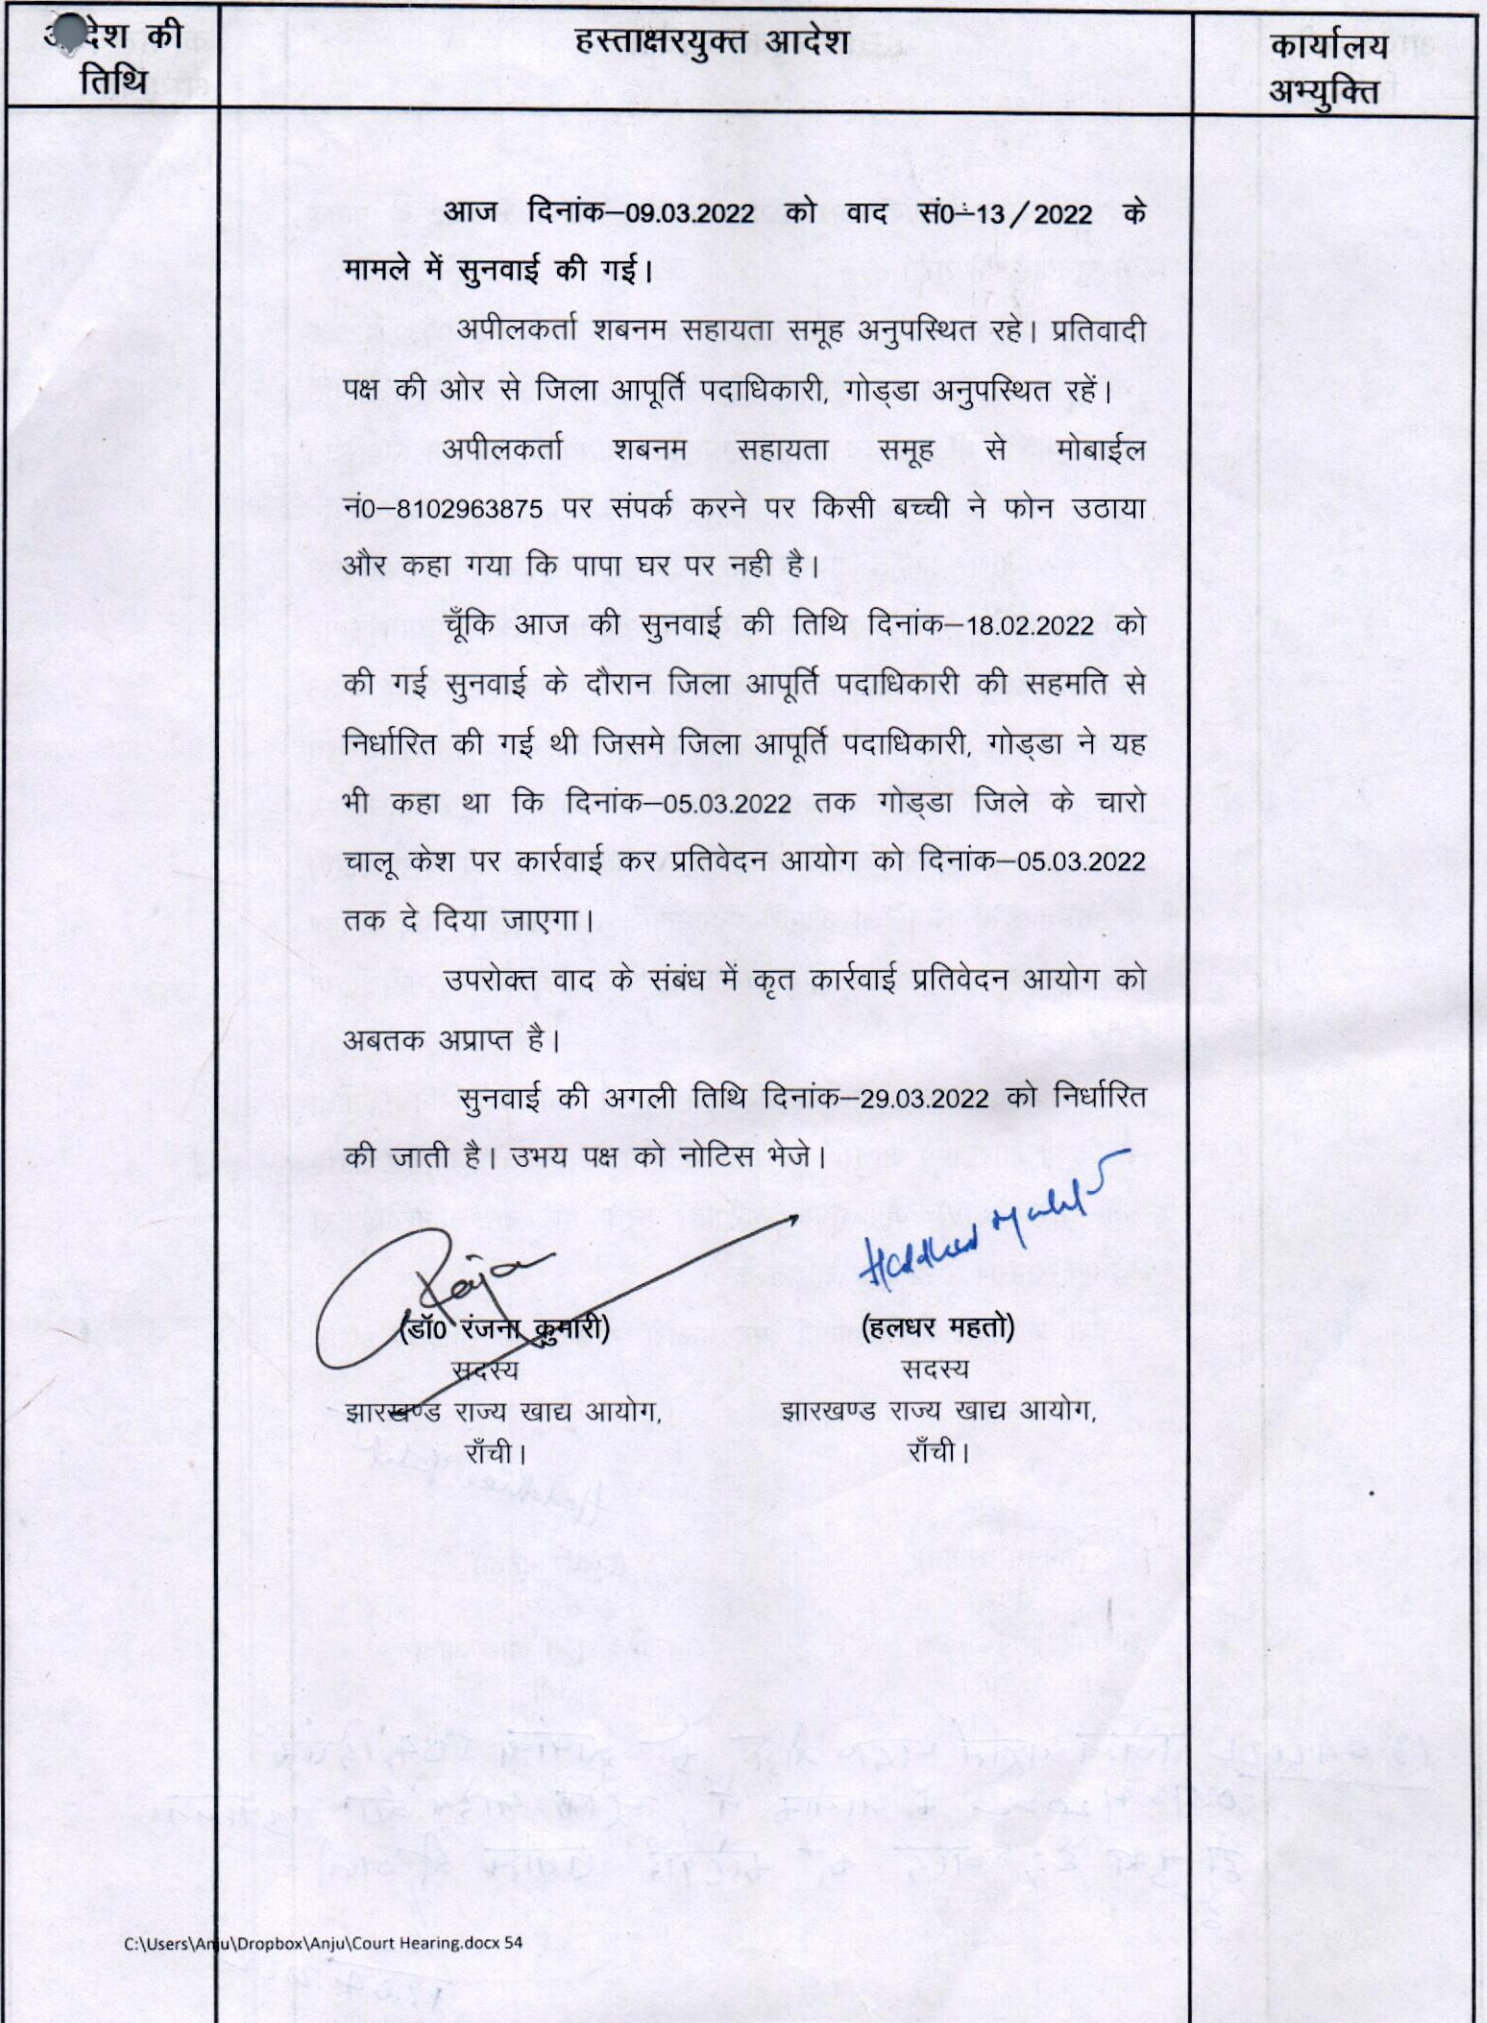 आदेश की
तिथि
हस्ताक्षरयुक्त आदेश
कार्यालय
अभ्युक्ति
आज दिनांक–09.03.2022 को वाद सं0–13/2022 के
मामले में सुनवाई की गई।
अपीलकर्ता शबनम सहायता समूह अनुपस्थित रहे। प्रतिवादी
पक्ष की ओर से जिला आपूर्ति पदाधिकारी, गोड्डा अनुपस्थित रहें।
अपीलकर्ता शबनम सहायता समूह से मोबाईल
नं0–8102963875 पर संपर्क करने पर किसी बच्ची ने फोन उठाया
और कहा गया कि पापा घर पर नही है।
चूँकि आज की सुनवाई की तिथि दिनांक–18.02.2022 को
की गई सुनवाई के दौरान जिला आपूर्ति पदाधिकारी की सहमति से
निर्धारित की गई थी जिसमे जिला आपूर्ति पदाधिकारी, गोड्डा ने यह
भी कहा था कि दिनांक–05.03.2022 तक गोड्डा जिले के चारो
चालू केश पर कार्रवाई कर प्रतिवेदन आयोग को दिनांक–05.03.2022
तक दे दिया जाएगा।
उपरोक्त वाद के संबंध में कृत कार्रवाई प्रतिवेदन आयोग को
अबतक अप्राप्त है।
सुनवाई की अगली तिथि दिनांक–29.03.2022 को निर्धारित
की जाती है। उभय पक्ष को नोटिस भेजे।
(डॉ0 रंजना कुमारी)
सदस्य
झारखण्ड राज्य खाद्य आयोग,
राँची।
(हलधर महतो)
सदस्य
झारखण्ड राज्य खाद्य आयोग,
राँची।
C:\Users\Anju\Dropbox\Anju\Court Hearing.docx 54